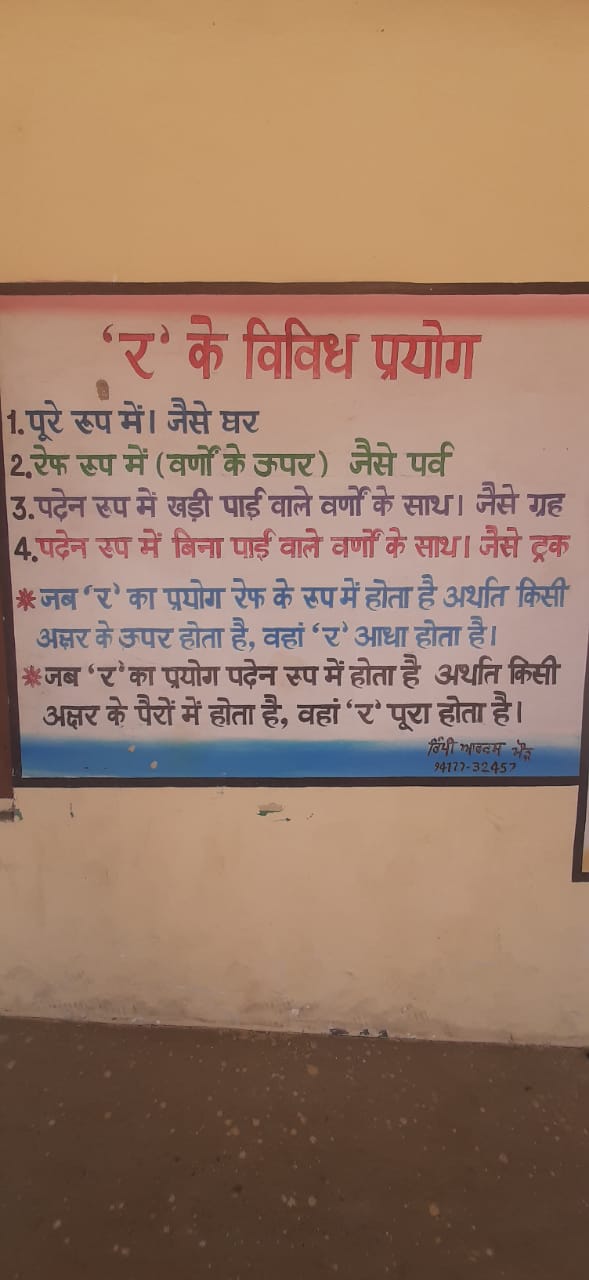 ‘र’ के विविध प्रयोग
1. पूरे रूप में। जैसे घर
2. रेफ रूप में (वर्णों के ऊपर) जैसे पर्व
3. पदेन रूप में खड़ी पाई वाले वर्णों के साथ। जैसे ग्रह
4. पदेन रुप में बिना पाई वाले वर्णों के साथ। जैसे ट्रक
* जब ‘र’ का प्रयोग रेफ के रुप में होता है अर्थात किसी
अक्षर के ऊपर होता है, वहां ‘र’ आधा होता है।
* जब ‘र’ का प्रयोग पदेन रुप में होता है अर्थात किसी
अक्षर के पैरों में होता है, वहां ‘र’ पूरा होता है।
94177-32457